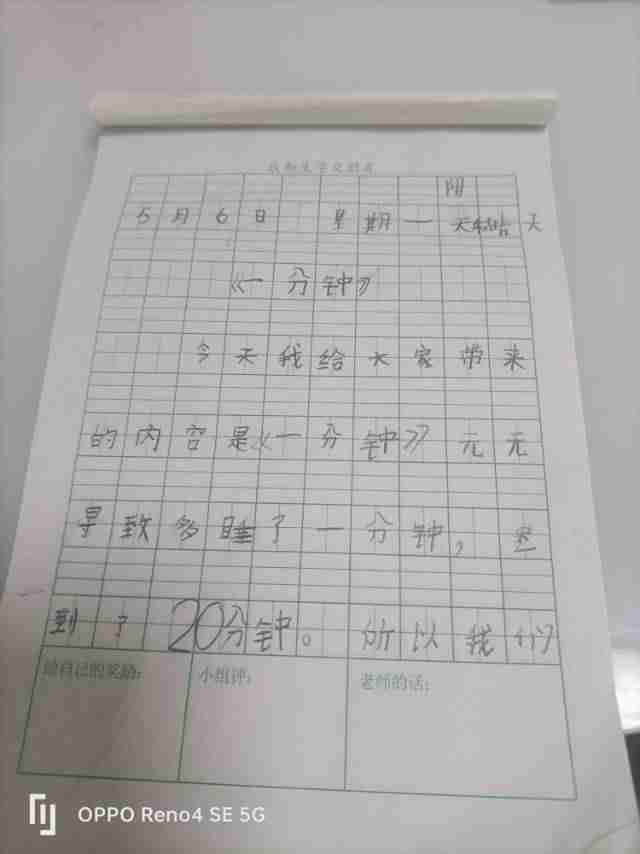 阴
5月6日 星期一 天 天
《一分钟》
今天我给大家带来
的内容是《一分钟》元元
导致多睡了一分钟,
到了20分钟。所以我们
给自己的奖励:
小组评:
老师的话:
OPPO Reno4 SE 5G